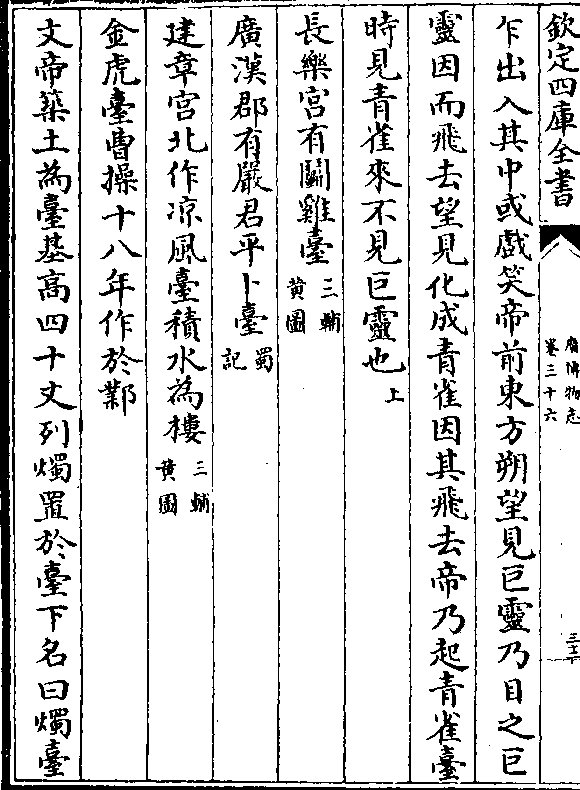 欽定四庫全書
廣博物志
卷三十六
乍出入其中或戲笑帝前東方朔望見巨靈乃目之巨
靈因而飛去望見化成青雀因其飛去帝乃起青雀臺
時見青雀來不見巨靈也上
長樂宮有鬬雞臺三輔黄圖
廣漢郡有嚴君平卜臺蜀記
建章宮北作凉風臺積水為樓三輔黄圖
金虎臺曹操十八年作於鄴
文帝築土為臺基高四十丈列燭置於臺下名曰燭臺